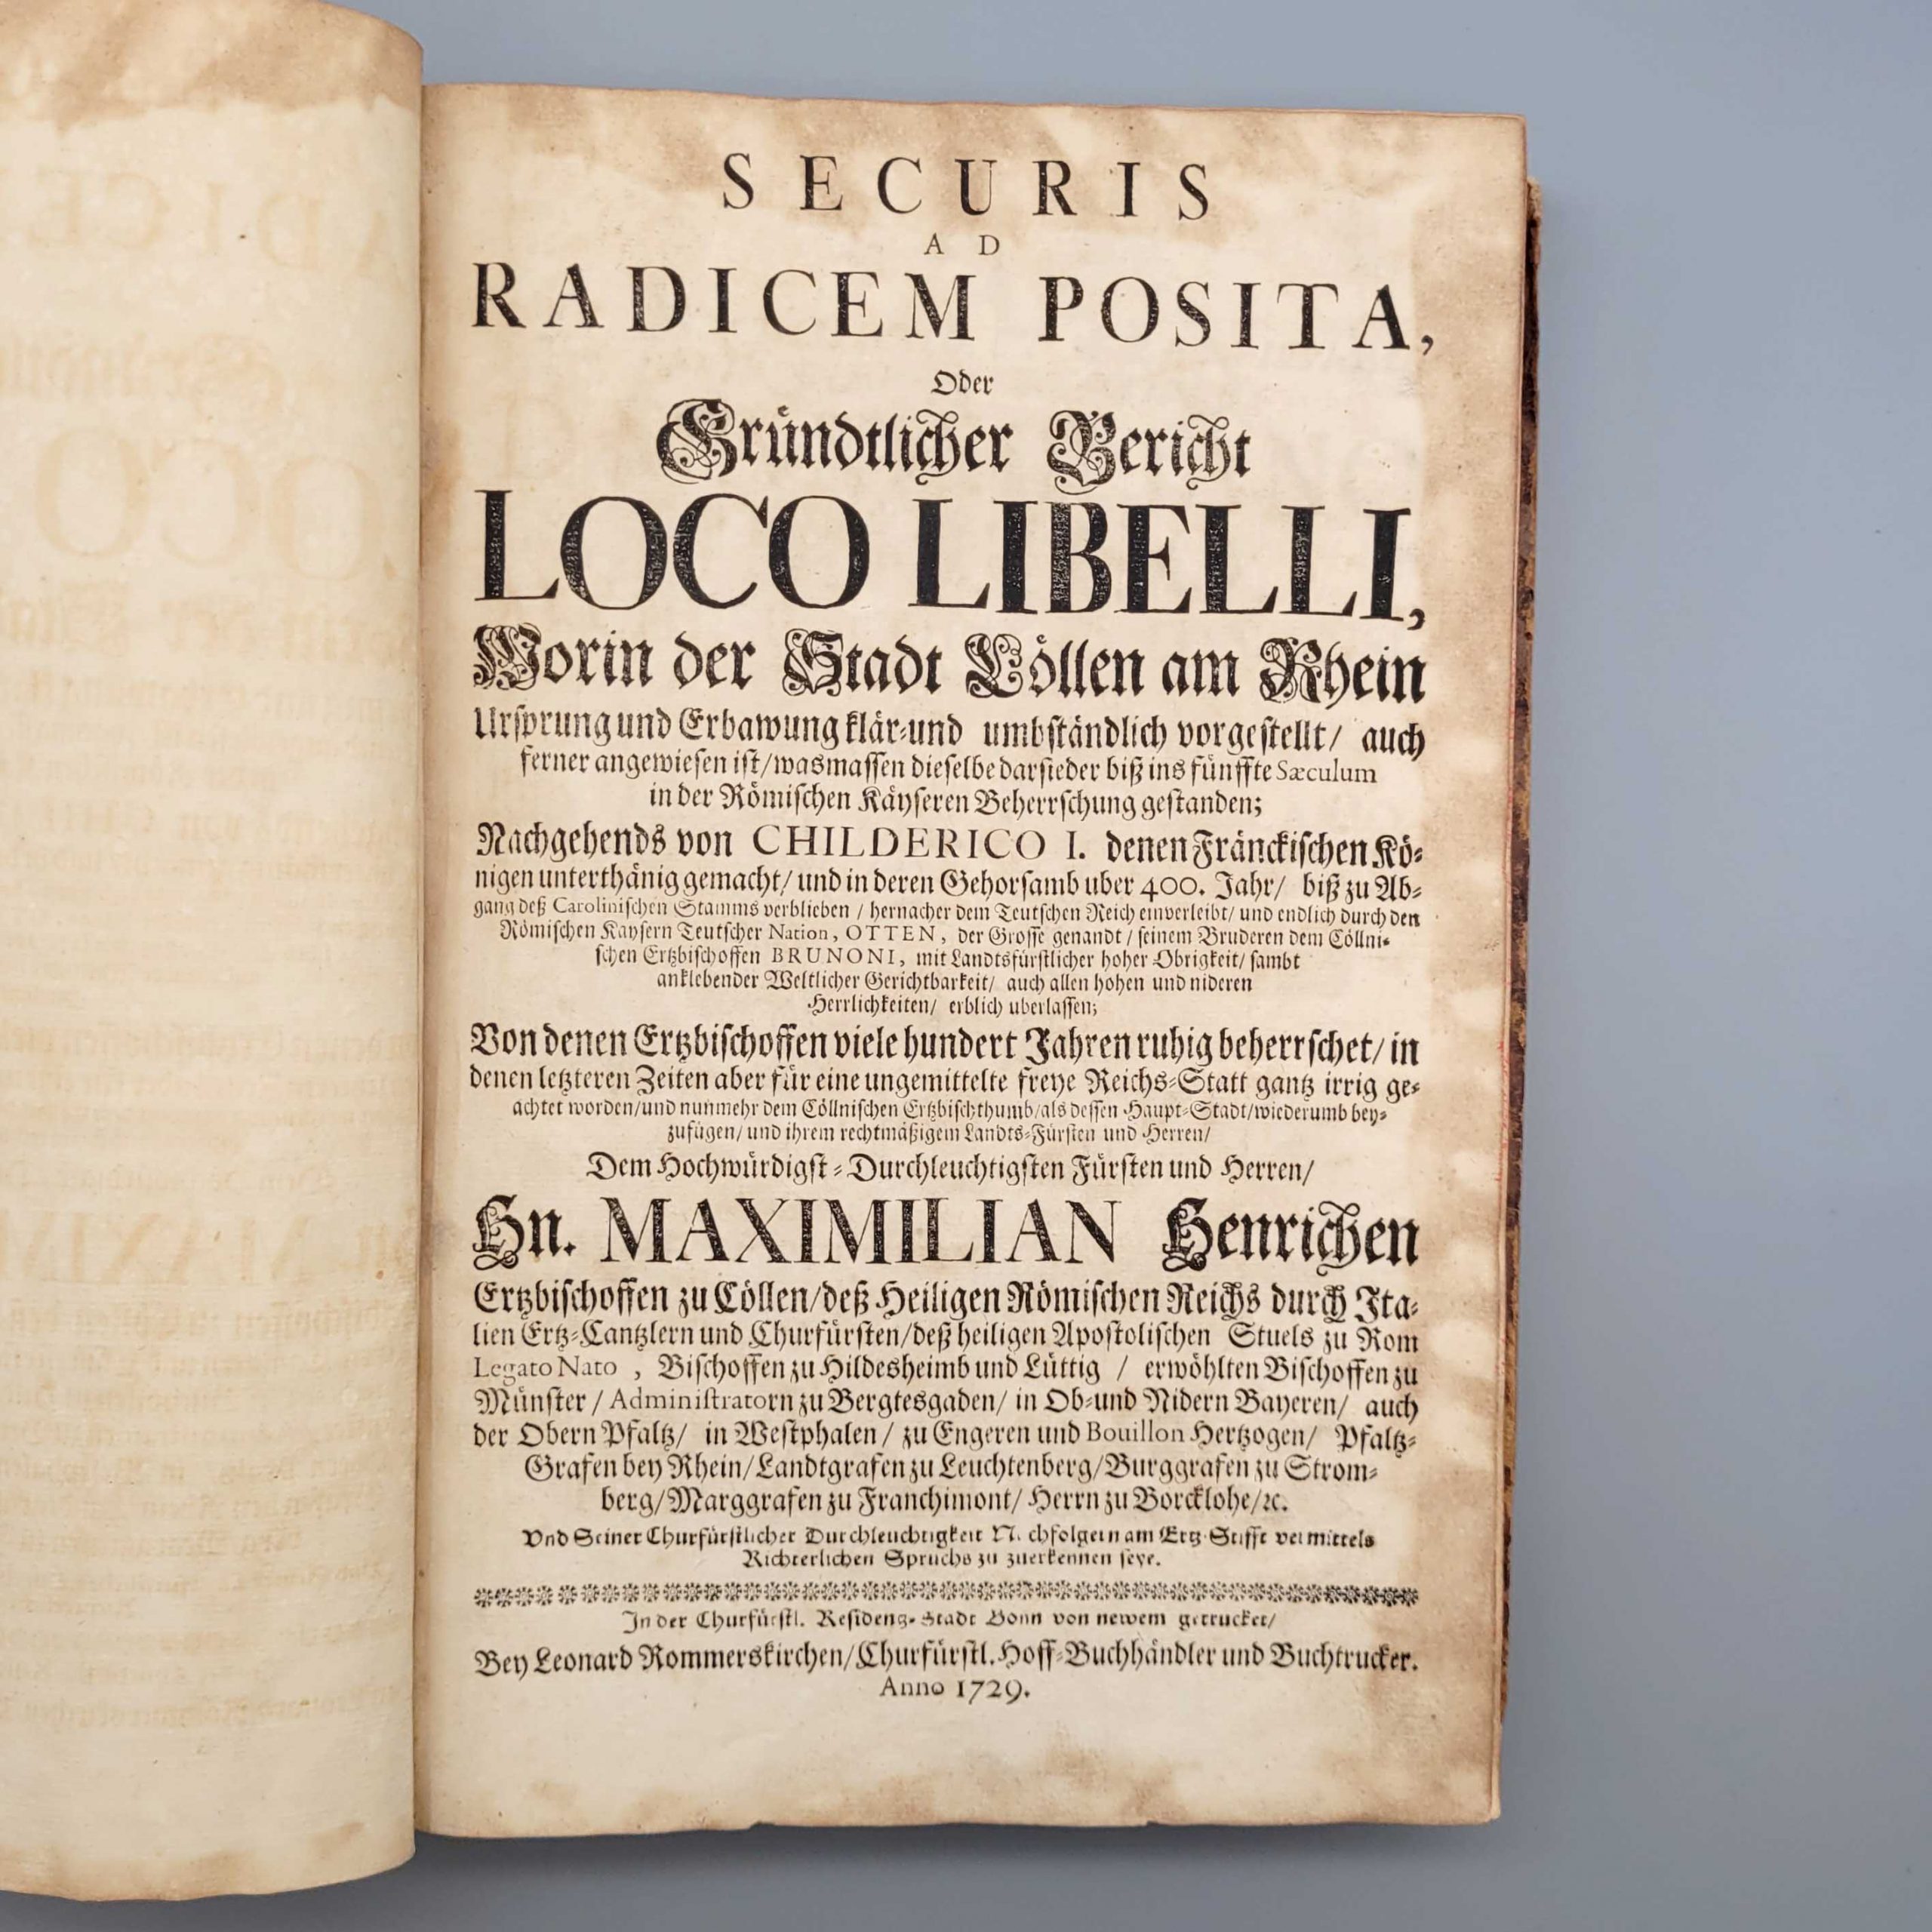 SECURIS
AD
RADICEM POSITA,
Oder
Gründtlicher Bericht
LOCO LIBELLI,
Worin der Stadt Cöllen am Rhein
Ursprung und Erbawung klär-und umbständlich vorgestellt/ auch
ferner angewiesen ist/wasmassen dieselbe darsieder biß ins fünffte Sæculum
in der Römischen Käyseren Beherrschung gestanden;
Nachgehends von CHILDERICO I. denen Fränckischen Kö-
nigen unterthänig gemacht/ und in deren Gehorsamb uber 400. Jahr/ biß zu Ab-
gang deß Carolinischen Stamms verblieben / hernacher dem Teutschen Reich einverleibt/ und endlich durch den
Römischen Kaysern Teutscher Nation, OTTEN, der Grosse genandt / seinem Bruderen dem Cöllni-
schen Ertzbischoffen BRUNONI, mit Landtsfürstlicher hoher Obrigkeit/ sambt
anklebender Weltlicher Gerichtbarkeit/ auch allen hohen und nideren
Herrlichkeiten/ erblich uberlassen;
Von denen Ertzbischoffen viele hundert Jahren ruhig beherrschet/ in
denen letzteren Zeiten aber für eine ungemittelte freye Reichs-Statt gantz irrig ge-
achtet worden/und nunmehr dem Cöllnischen Ertzbischthumb/als dessen Haupt-Stadt/wiederumb bey-
zufügen/ und ihrem rechtmäßigem Landts-Fürsten und Herren/
Dem Hochwürdigst-Durchleuchtigsten Fürsten und Herren/
Hn. MAXIMILIAN Henrichen
Ertzbischoffen zu Cöllen/deß Heiligen Römischen Reichs durch Ita-
lien Ertz-Cantzlern und Churfürsten/deß heiligen Apostolischen Stuels zu Rom
Legato Nato , Bischoffen zu Hildesheimb und Lüttig / erwöhlten Bischoffen zu
Münster / Administratorn zu Bergtesgaden/ in Ob-und Nidern Bayeren/ auch
der Obern Pfaltz/ in Westphalen / zu Engeren und Bouillon Hertzogen/ Pfaltz-
Grafen bey Rhein/Landtgrafen zu Leuchtenberg/Burggrafen zu Strom-
berg/Marggrafen zu Franchimont/ Herrn zu Borcklohe/ꝛc.
Vnd Seiner Churfürstlicher Durchleuchtigkeit N. chfolgern am Ertz-Stifft vermittels
Richterlichen Spruchs zu zuerkennen seye.
In der Churfürstl. Residentz-Stadt Bonn von newem getrucket/
Bey Leonard Rommerskirchen/Churfürstl. Hoff-Buchhändler und Buchtrucker.
Anno 1729.